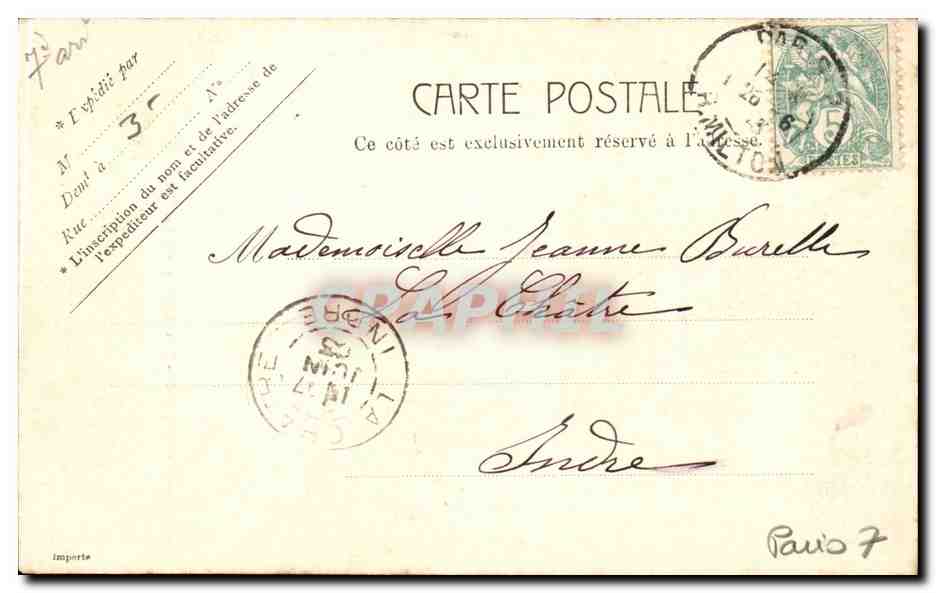 7è arr
* Expédié par
M
3
N°
Demt à
Rue
* L'inscription du nom et de l'adresse de
l'expediteur est facultative.
CARTE POSTALE
Ce côté est exclusivement réservé à l'adresse.
PARIS
R. MILTON
5
POSTES
Mademoiselle Jeanne Burelle
La Châtre
Indre
CPAPHIL
LA CHATRE
17
JUIN
03
INDRE
Importé
Paris 7